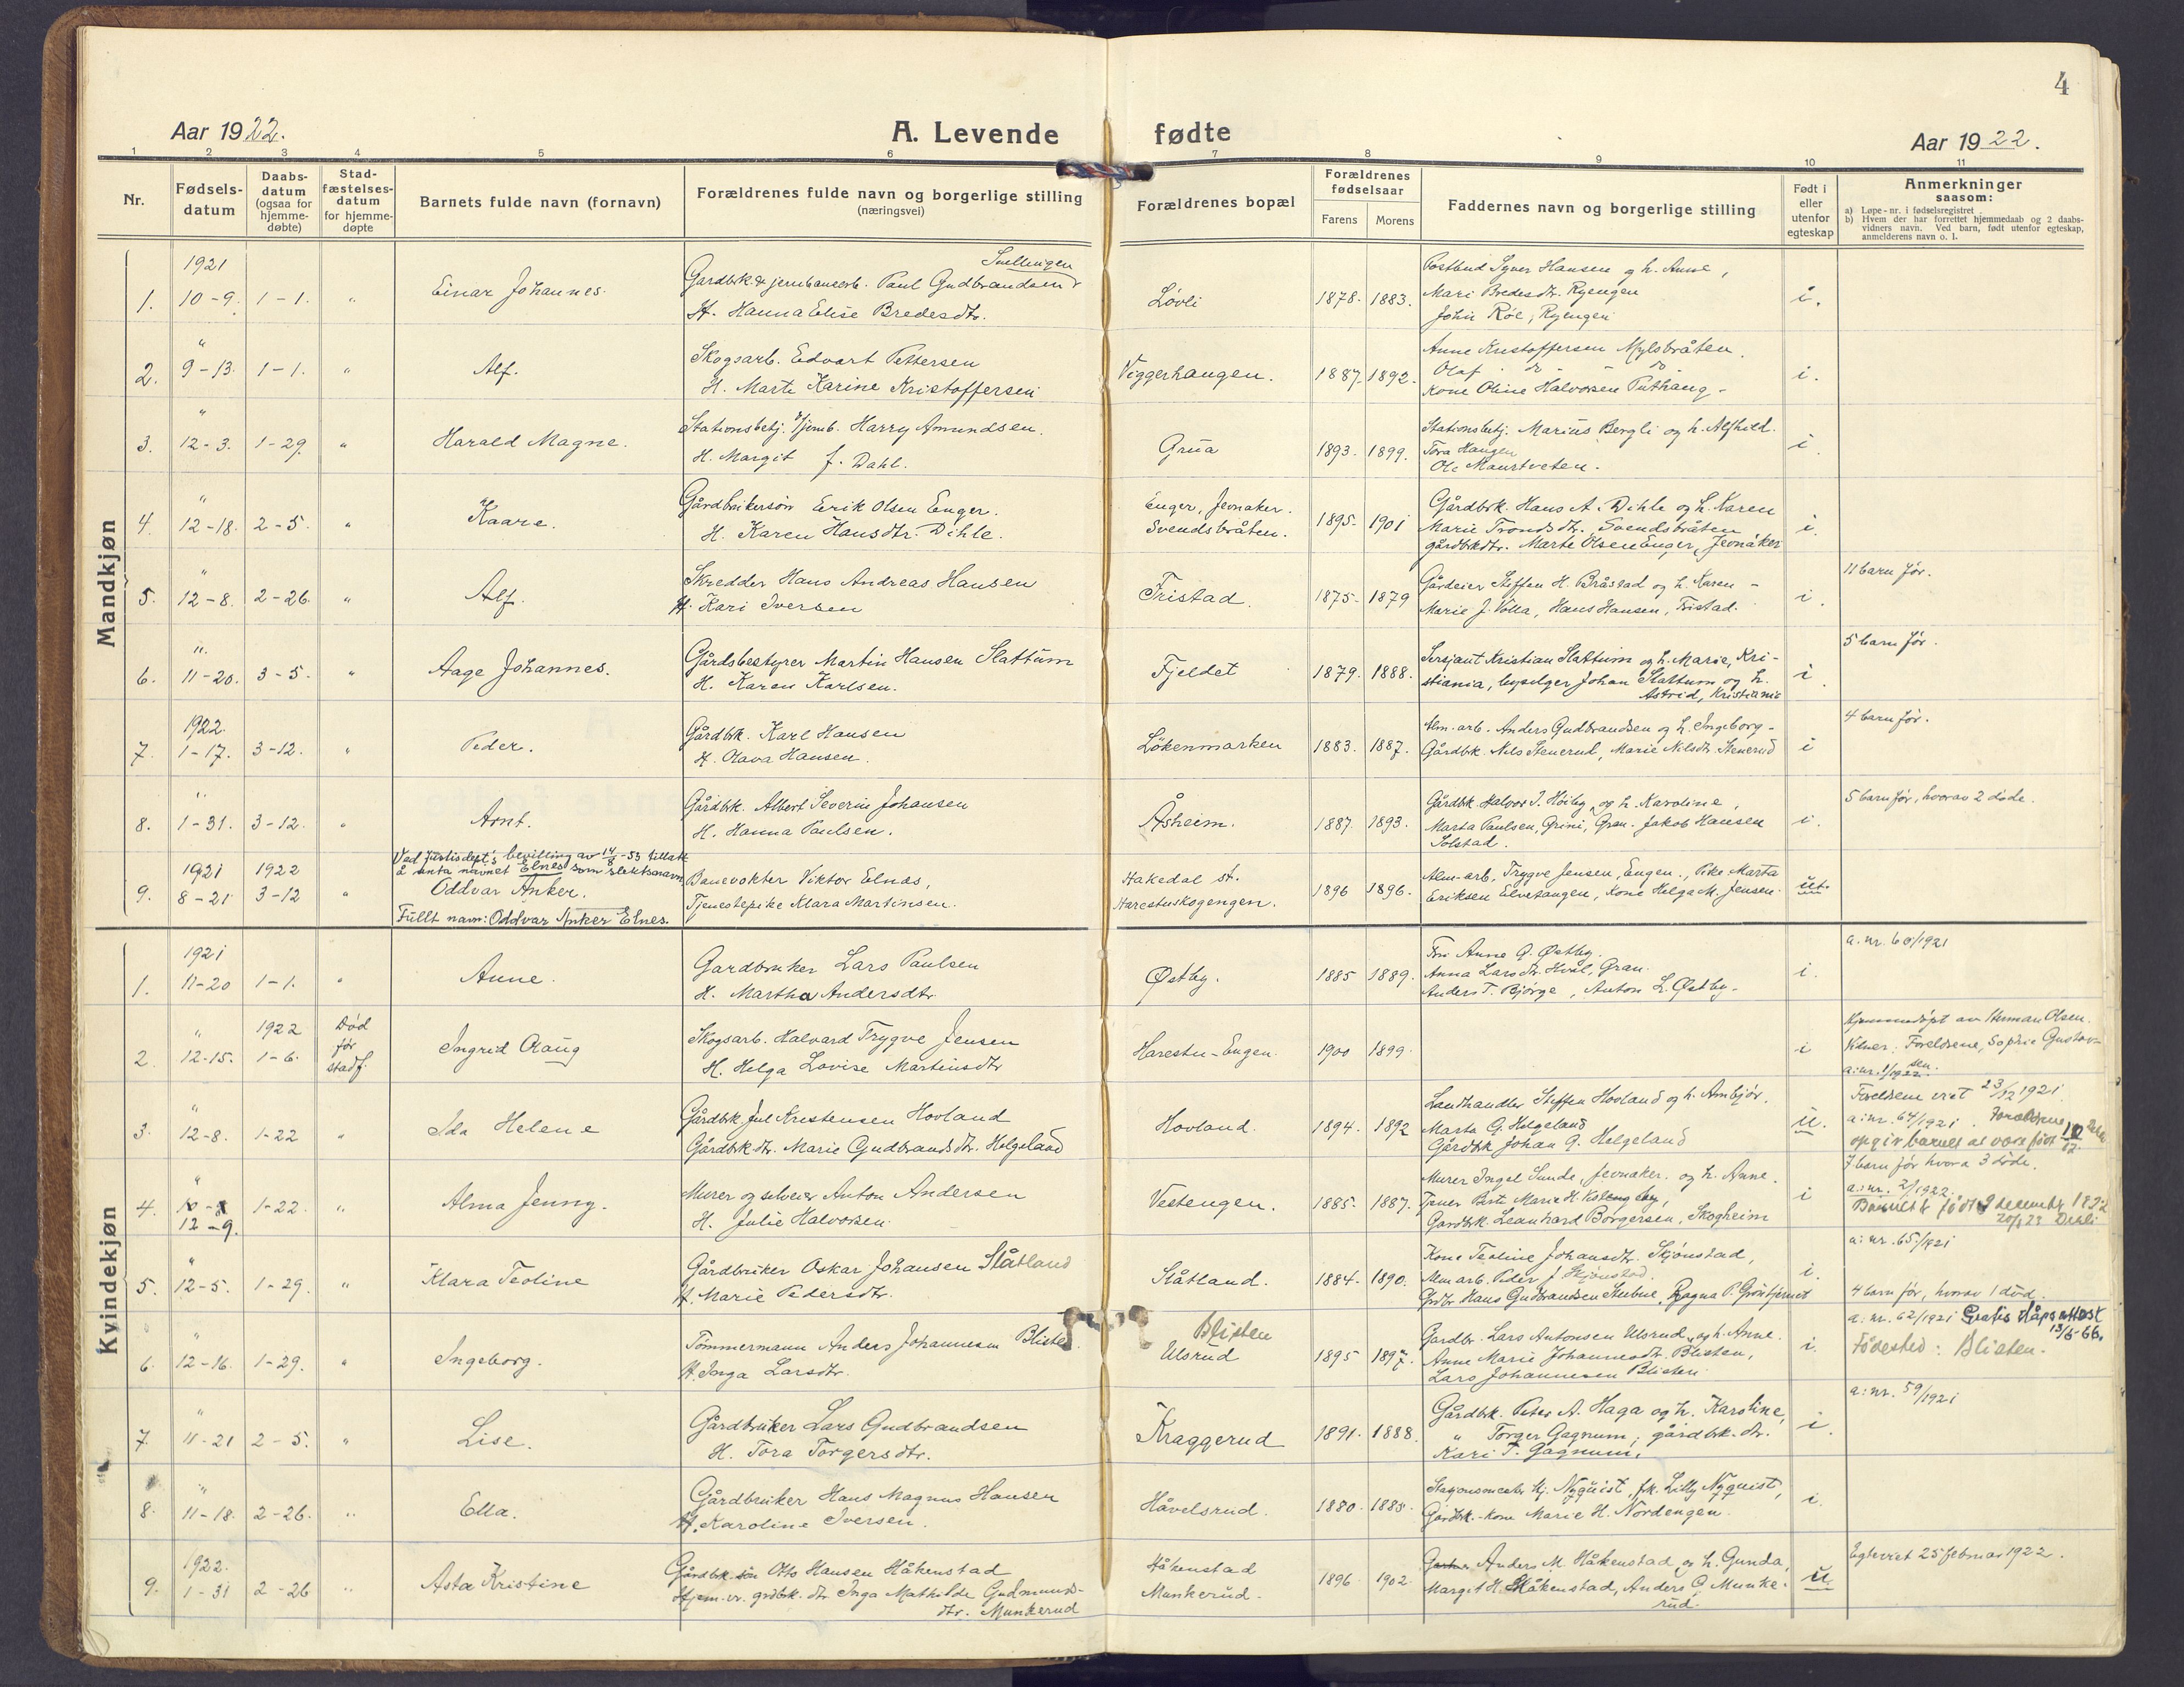 4
Aar 1922.
A. Levende fødte
Aar 1922.
1 2 3 4 5 6 7 8 9 10 11
Nr.
Fødsels-
datum
Daabs-
datum
(ogsaa for
hjemme-
døbte)
Stad-
fæstelses-
datum
for hjemme-
døpte
Barnets fulde navn (fornavn)
Forældrenes fulde navn og borgerlige stilling
(næringsvei)
Forældrenes bopæl
Forældrenes
fødselsaar
Farens Morens
Faddernes navn og borgerlige stilling
Født i
eller
utenfor
egteskap
Anmerkninger
saasom:
a) Løpe-nr. i fødselsregistret
b) Hvem der har forrettet hjemmedaab og 2 daabs-
vidners navn. Ved barn, født utenfor egteskap,
anmelderens navn o. l.
Mandkjøn
1921
1. 10-9. 1-1. " Einar Johannes.
Snellingen
Gardbk. & jernbanearb. Paul Gudbrandsen
H. Hanna Elise Bredesdtr.
Løvli 1878. 1883.
Postbud Syver Hansen og h. Anne,
Mari Bredesdtr. Ryengen
John Röe, Ryengen
i.
"
2. 9-13. 1-1. " Alf.
Skogsarb. Edvart Pettersen
H. Marte Karine Kristoffersen
Viggerhaugen. 1887. 1892.
Anne Kristoffersen Mylsbråten.
Olaf do do
Kone Oline Halvorsen Puthaug-
i.
"
3. 12-3. 1-29. " Harald Magne.
Stationsbetj. v/jernb. Harry Amundsen.
H. Margit f. Dahl.
Grua 1893. 1899.
Stationsbetj. Marius Bergli og h. Alfhild.
Tora Haugen
Ole Maurtveten.
i.
"
4. 12-18. 2-5. " Kaare.
Gårdbrukersön Erik Olsen Enger.
H. Karen Hansdtr. Dihle.
Enger, Jevnaker.
Svendsbråten.
1895. 1901
Gårdbrk. Hans A. Dihle og h. Karen
Marie Trondsdtr. Svendsbråten
gårdbkdtr. Marte Olsen Enger, Jevnaker
i.
"
5. 12-8. 2-26. " Alf.
Skredder Hans Andreas Hansen
H. Kari Iversen
Tristad. 1875- 1879
Gårdeier Steffen H. Bråstad og h. Karen -
Marie J. Volla, Hans Hansen, Tristad.
i.
11 barn før.
"
6. 11-20. 3-5. " Aage Johannes.
Gårdsbestyrer Martin Hansen Slattum
H. Karen Karlsen.
Fjeldet 1879. 1888.
Sersjant Kristian Slattum og h. Marie, Kri-
stiania, byselger Johan Slattum og h.
Astrid, Kristiania
i.
5 barn før.
1922.
7. 1-17. 3-12. " Peder.
Gårdbk. Karl Hansen
H. Olava Hansen.
Løkenmarken 1883. 1887.
Alm. arb. Anders Gudbrandsen og h. Ingeborg -
Gårdbk. Nils Stenerud, Marie Nilsdtr. Stenerud
i
4 barn før.
"
8. 1-31. 3-12. " Arnt.
Gårdbk. Albert Severin Johansen
H. Hanna Paulsen.
Åsheim. 1887. 1893.
Gårdbk. Halvor J. Höiby og h. Karoline,
Marta Paulsen, Grini, Gran. Jakob Hansen
Solstad.
i.
5 barn før, hvorav 2 døde.
Ved Justisdept's bevilling av 14/8-53 tillatt
å anta navnet Elnes som slektsnavn
1921 1922
9. 8-21 3-12 " Oddvar Anker.
Fullt navn: Oddvar Anker Elnes.
Banevokter Viktor Elnæs,
Tjenestepike Klara Martinsen.
Hakedal st.
Harestuskogengen.
1896 1896.
Alm-arb. Trygve Jensen, Engen., Pike Marta
Eriksen Elvetangen, Kone Helga M. Jensen.
ut.
Kvindekjøn
1921
1. 11-20 1-1. " Anne.
Gardbruker Lars Paulsen
H. Martha Andersdtr.
Østby. 1885 1889.
Fru Anne G. Østby.
Anna Larsdtr. Hval, Gran.
Anders T. Bjørge, Anton L. Østby-
i.
a. nr. 60/1921
" 1922
2. 12-15. 1-6.
Død
før
stadf.
Ingrid Olaug
Skogsarb. Halvard Trygve Jensen
H. Helga Lovise Martinsdtr
Harestu-Engen. 1900 1899.
i
Hjemmedøpt av Herman Olsen.
Vidner: Foreldrene, Sophie Gustav-
sen.
a: nr. 1/1922.
"
3. 12-8. 1-22 " Ida Helene
Gårdbk. Jul Kristensen Hovland
Gårdbk. dtr. Marie Gudbrandsdtr. Helgeland
Hovland. 1894. 1892
Landhandler Steffen Hovland og h. Ambjør.
Marta G. Helgeland
Gårdbk Johan G. Helgeland
u.
Foreldrene viet 23/12 1921.
a: nr. 64/1921. Foreldrene
opgir barnet at være født 10/12
"
4. 10-8 1-22. " Alma Jenny.
12-9.
Murer og selveier Anton Andersen
H. Julie Halvorsen.
Vestengen. 1885. 1887.
Murer Ingel Sunde, Jevnaker. og h. Anne.
Gardbk. Leonhard Borgersen, Skogheim
i
7 barn før hvorav 3 døde.
a: nr. 2/1922.
"
5. 12-5. 1-29. " Klara Teoline
Gårdbruker Oskar Johansen Slåtland
H. Marie Pedersdtr.
Slåtland. 1884. 1890.
Kone Teoline Johansdtr. Skjønstad,
Alm arb. Peder J. Skjønstad.
Grdbr Hans Gudbrandsen Stubne, Ragna P. Grøntjernet
i.
a: nr. 65/1921
4 barn før, hvorav 1 død.
"
6. 12-16. 1-29. " Ingeborg.
Tömmermann Anders Johannesen Blisten.
H. Inga Larsdtr.
Blisten
Ulsrud
1895 1897.
Gardbr. Lars Antonsen Ulsrud, og h. Anne.
Anne Marie Johannesdtr. Blisten,
Lars Johannesen Blisten
i.
a. nr. 62/1921 Gratis dåpsattest
13/6-66.
Fødested: Blisten.
"
7. 11-21 2-5. " Lise.
Gårdbruker Lars Gudbrandsen
H. Tora Torgersdtr.
Kraggerud 1891. 1888.
Gårdbk. Peter A. Haga og h. Karoline,
" Torger Gagnum, gårdbk. dtr.
Kari T. Gagnum,
i.
a: nr. 59/1921
"
8. 11-18. 2-26. " Ella.
Gårdbruker Hans Magnus Hansen
H. Karoline Iversen.
Håvelsrud. 1880. 1885.
Stasjonsmester Hj. Nyquist, frk. Lilly Nyquist,
Gårdbk.-kone Marie H. Nordengen.
i.
1922.
9. 1-31 2-26 " Asta Kristine
Gårdbk. sön Otto Hansen Håkenstad
Hjem.v. grdbk. dtr Inga Mathilde Gudmunds-
dtr. Munkerud
Håkenstad
Munkerud.
1896. 1902
Anders M. Håkenstad og h. Gunda,
Margit H. Håkenstad, Anders G. Munke-
rud.
u.
Egteviet 25 februar 1922.